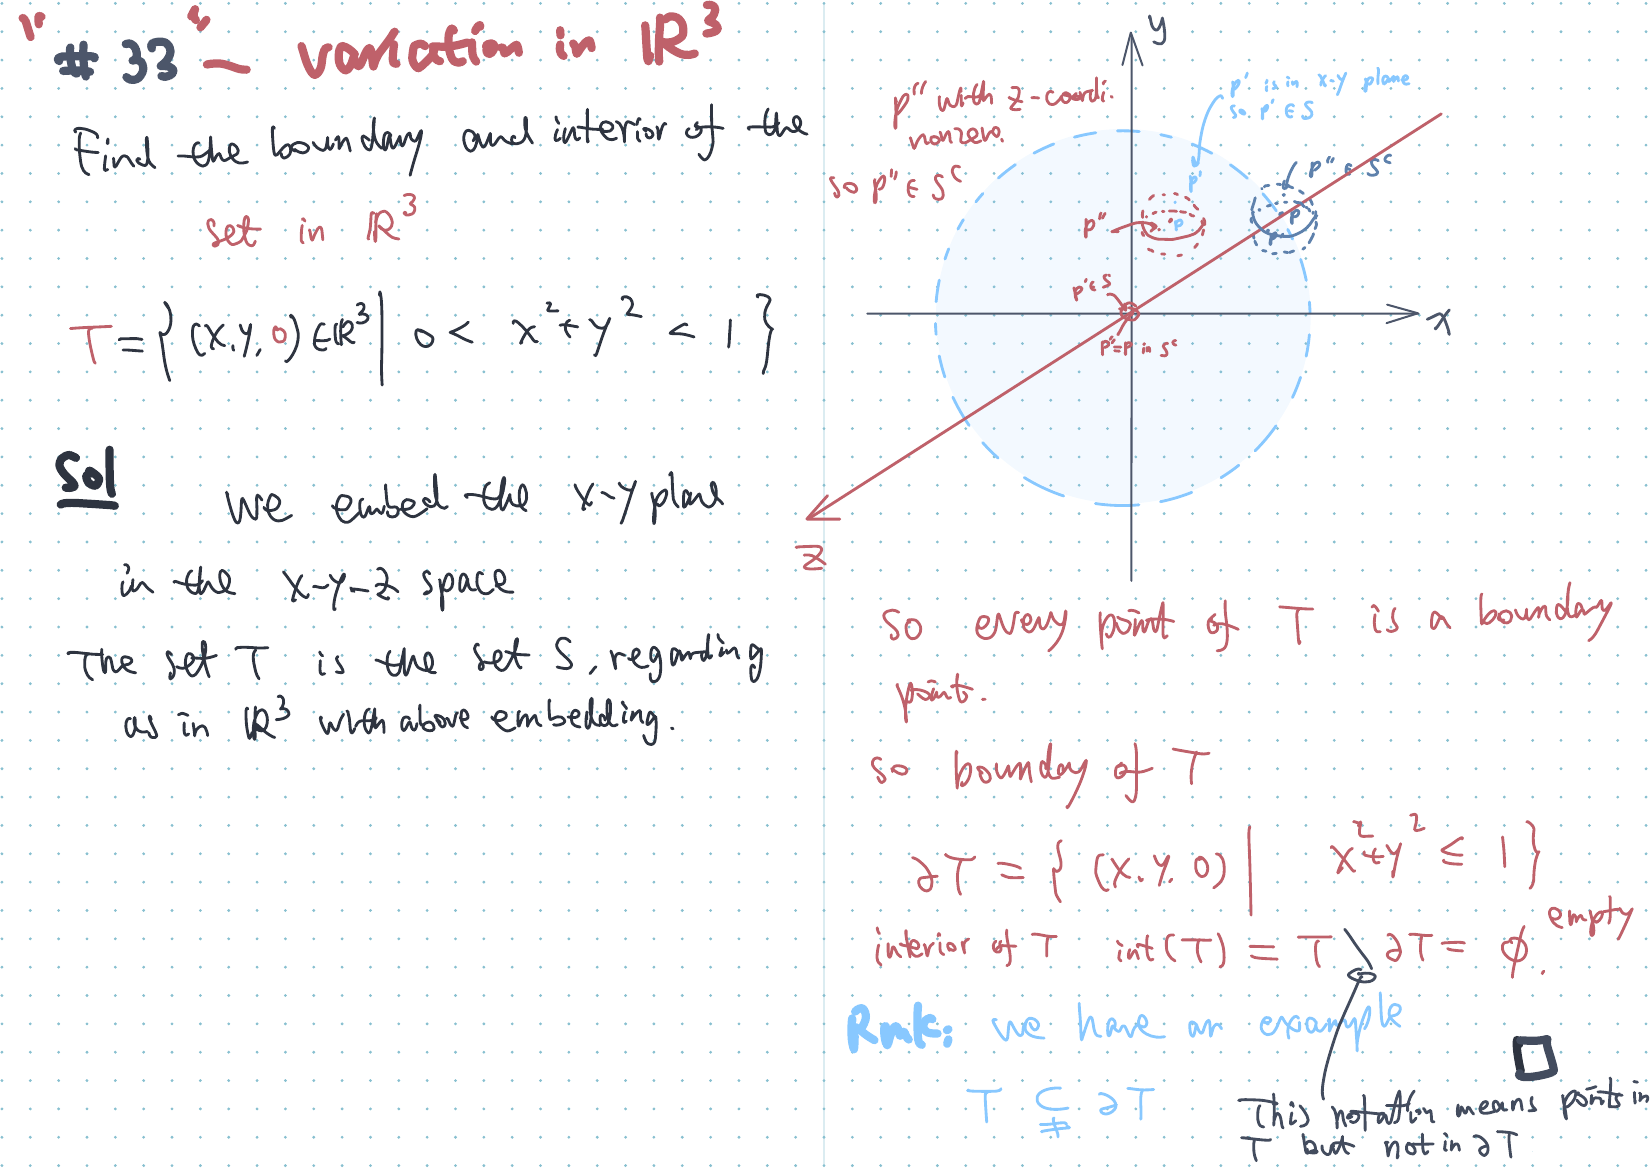 "#33" ~ variation in ℝ³
Find the boundary and interior of the
set in ℝ³
T = { (x, y, 0) ∈ ℝ³ | 0 < x² + y² < 1 }
Sol
We embed the x-y plane
in the x-y-z space
The set T is the set S, regarding
as in ℝ³ with above embedding.
y
p'' with z-coordi.
nonzero.
so p'' ∈ Sᶜ
p' is in x-y plane
so p' ∈ S
p'
p'' ∈ Sᶜ
p''
p
p
p'
p' ∈ S
p''=p in Sᶜ
x
z
So every point of T is a boundary
point.
so bounday of T
∂T = { (x, y, 0) | x² + y² ≤ 1 }
interior of T int(T) = T \ ∂T = ∅. empty
Rmk: we have an example
T ⊊ ∂T
This notation means points in
T but not in ∂T